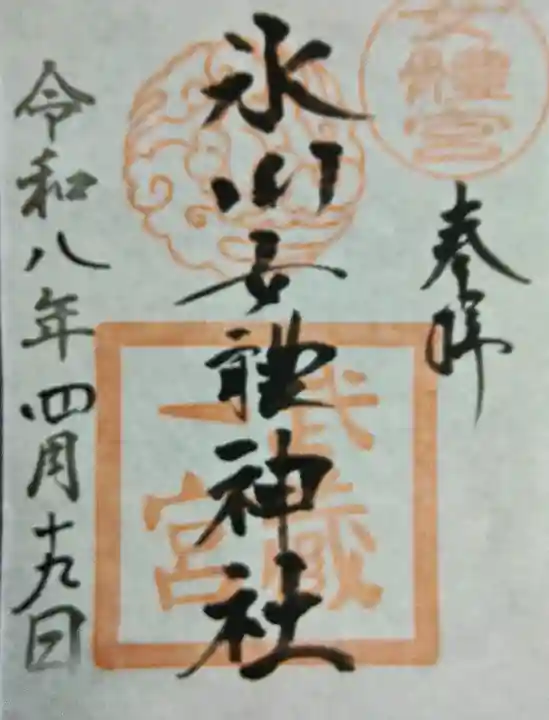 奉拝
女體宮
氷川女體神社
武蔵
一宮
令和八年四月十九日